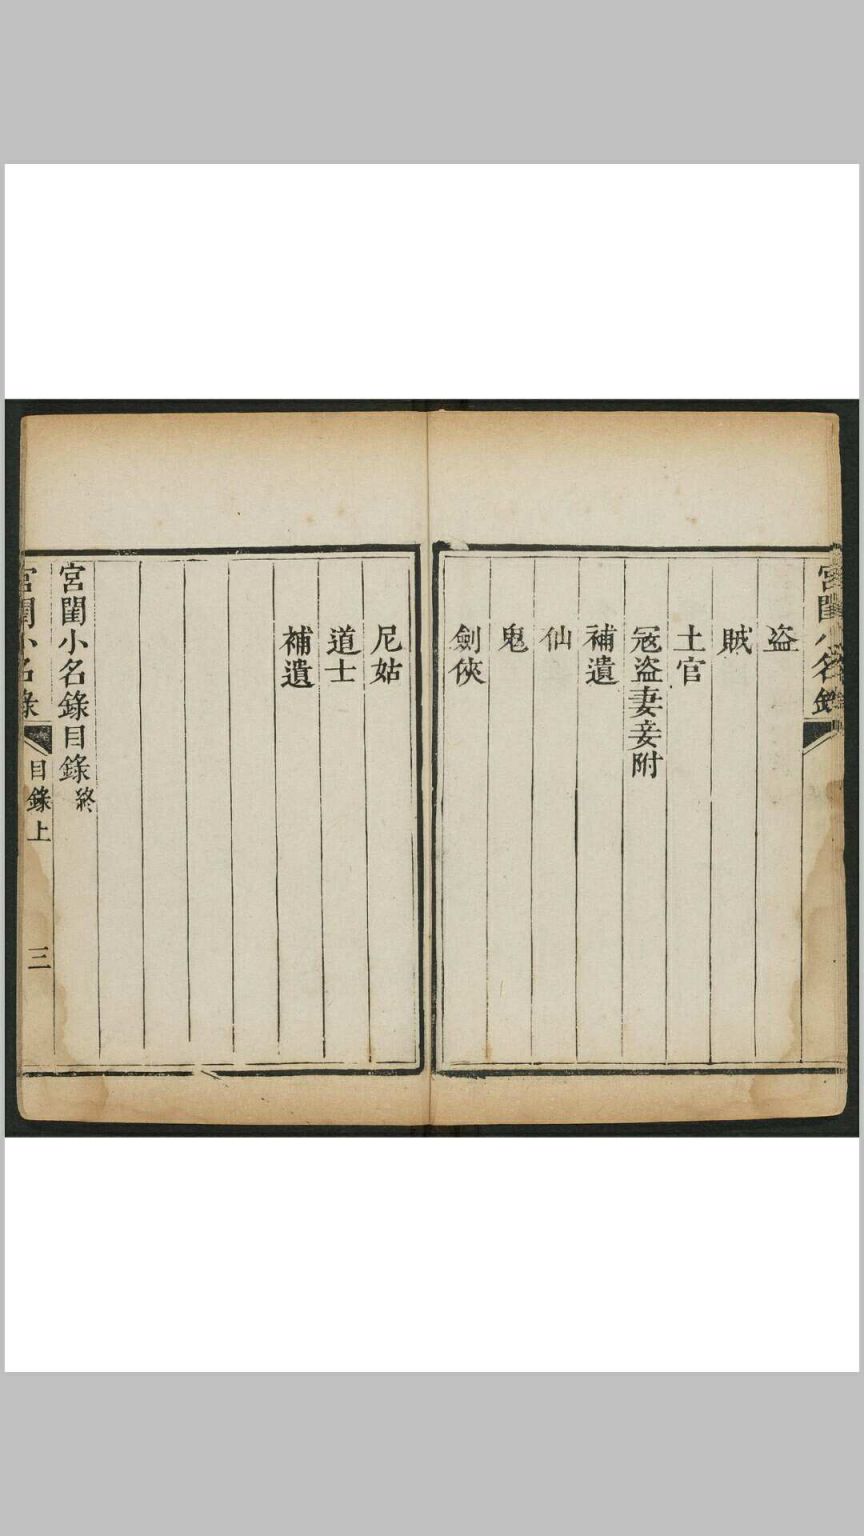 宮閨小名錄
盗
賊
土官
冦盗妻妾附
補遺
仙
鬼
劍俠
尼姑
道士
補遺
宮閨小名錄目錄終
宮閨小名錄
目錄上
三